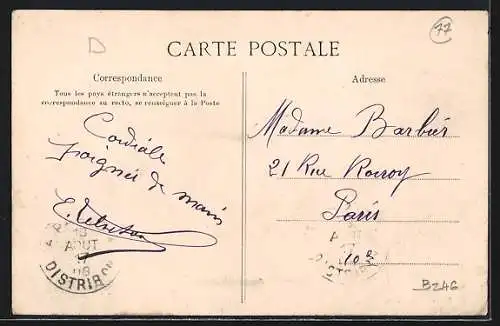 77
D
CARTE POSTALE
Correspondance
Tous les pays étrangers n'acceptent pas la
correspondance au recto, se renseigner à la Poste
Adresse
Cordiale
poignée de main
AOUT
08
DISTRIB
Madame Barbier
21 Rue Rocroy
Paris
10e
DISTRIB
B246